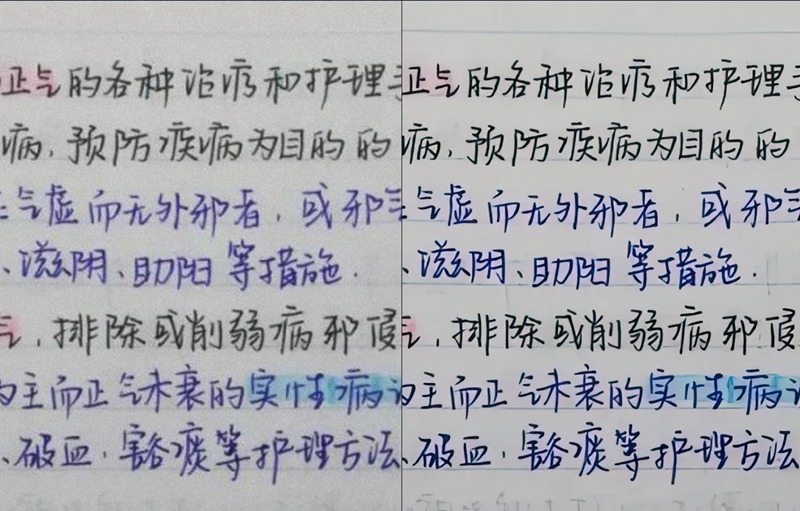 正气的各种治疗和护理手
病,预防疾病为目的的
气虚而无外邪者,或邪气
、滋阴、助阳等措施.
气,排除或削弱病邪侵
为主而正气未衰的实性病
、破血、豁痰等护理方法
正气的各种治疗和护理手
病,预防疾病为目的的
气虚而无外邪者,或邪气
、滋阴、助阳等措施.
气,排除或削弱病邪侵
为主而正气未衰的实性病
、破血、豁痰等护理方法